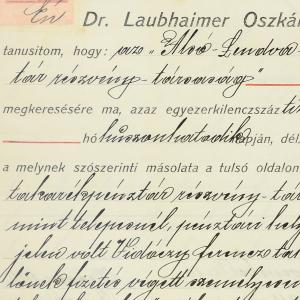 Én Dr. Laubhaimer Oszká
tanusitom, hogy: az "Alsó-Lendva
tár részvény-társaság"
megkeresésére ma, azaz egyezerkilenczszáz ti
hó huszonhatodik napján, dél
a melynek szószerinti másolata a tulsó oldalon
takarékpénztár részvény-tár
mint telepesnél, pénztári hely
jelen volt Vidóczy Ferencz tak
lönek fizetés végett személyesen